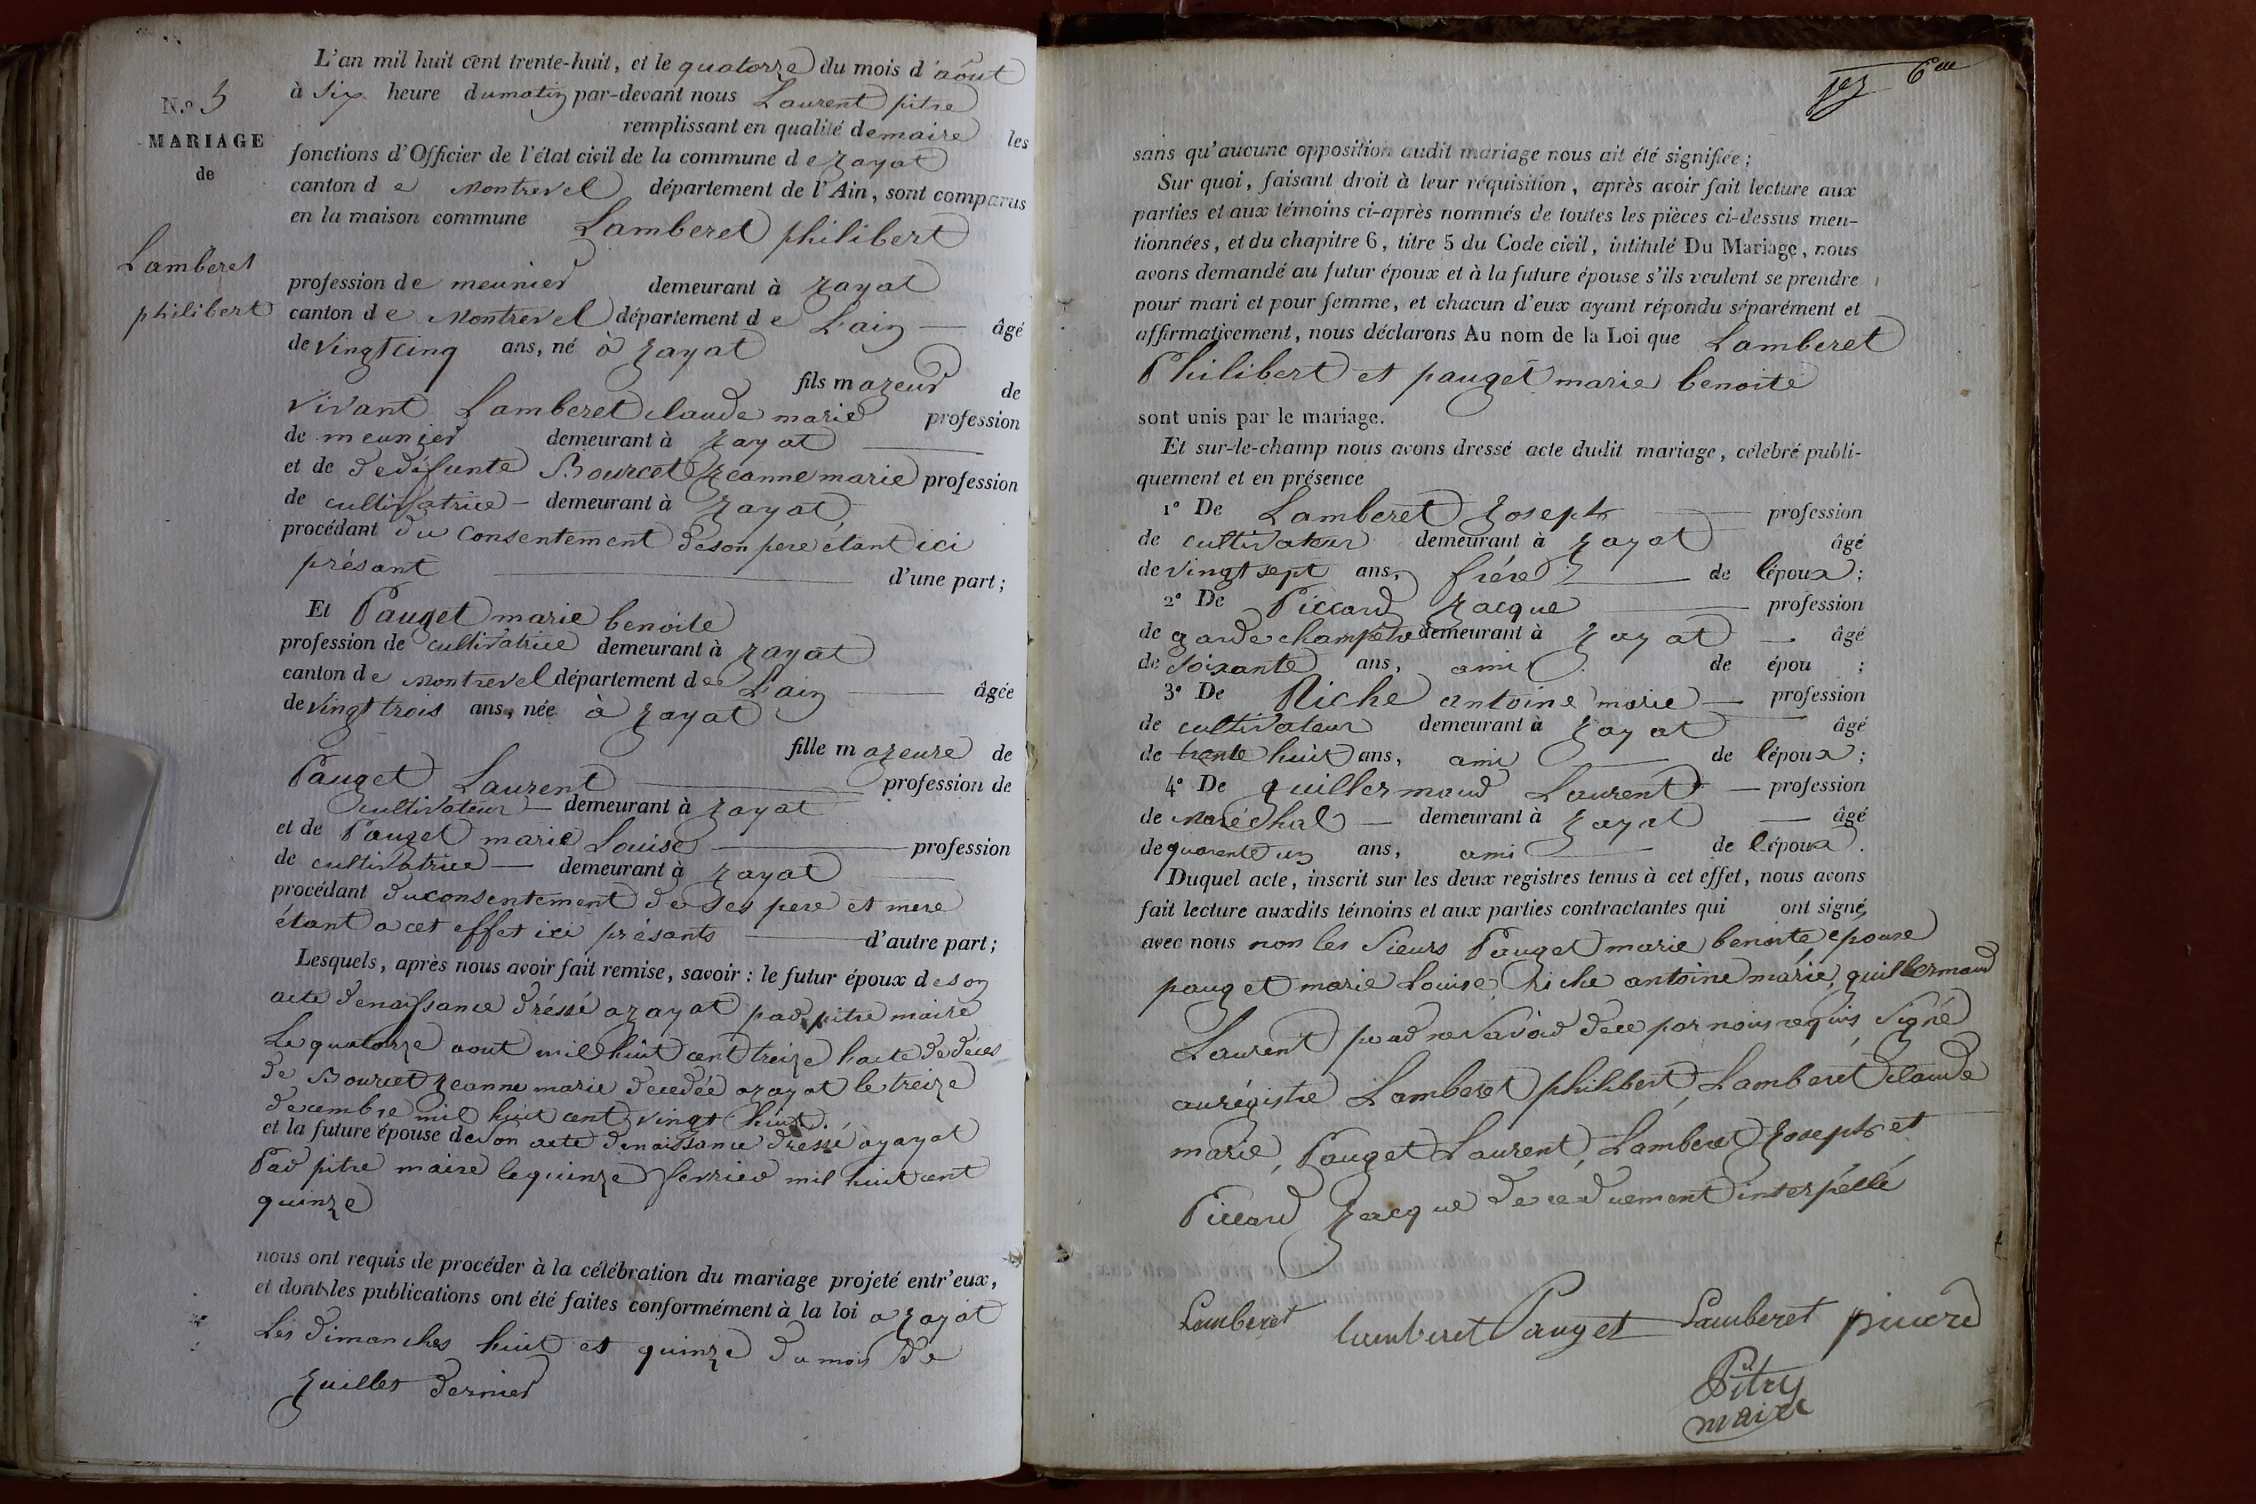 L'an mil huit cent trente-huit, et le quatorze du mois d'aôut
N.º 5
à six heure dumatin par-devant nous Laurent pitre
MARIAGE
remplissant en qualité demaire les
de
fonctions d'Officier de l'état civil de la commune de Zayat
canton de Montrevel département de l'Ain, sont comparus
en la maison commune Lamberet philibert
Lamberet
philibert
profession de meunier demeurant à Zayat
canton de Montrevel département de Lain — âgé
de vingtcinq ans, né à Zayat
fils mazeur de
vivant Lamberet claude marie profession
de meunier demeurant à Zayat
et de dedéfunte Bourcet Zéanne marie profession
de cultivatrice — demeurant à Zayat
procédant du consentement deson pere étant ici
présant d'une part;
Et Pauget marie benoite
profession de cultivatrice demeurant à Zayat
canton de Montrevel département de Lain — âgée
de vingt trois ans, née à Zayat
fille mazeure de
Pauget Laurent profession de
cultivateur — demeurant à Zayat
et de Pauget marie Louise — profession
de cultivatrice — demeurant à Zayat
procédant duconsentement de ses pere et mere
étant a cet effet ici présants — d'autre part;
Lesquels, après nous avoir fait remise, savoir: le futur époux deson
acte denaissance dréssé a Zayat par pitre maire
Le quatorze aout mil huit cent treize l'acte de déces
de Bourcet Zeanne marie decedée a Zayat le treize
decembre mil huit cent vingt huit.
et la future épouse deson acte denaissance dressé a Zayat
Par pitre maire lequinze fevrier mil huit cent
quinze
nous ont requis de procéder à la célébration du mariage projeté entr'eux,
et dont les publications ont été faites conformément à la loi a Zayat
Les dimanches huit et quinze du mois de
Zuillet dernier
6eme
sans qu'aucune opposition audit mariage nous ait été signifiée;
Sur quoi, faisant droit à leur réquisition, après avoir fait lecture aux
parties et aux témoins ci-après nommés de toutes les pièces ci-dessus men-
tionnées, et du chapitre 6, titre 5 du Code civil, intitulé Du Mariage, nous
avons demandé au futur époux et à la future épouse s'ils veulent se prendre
pour mari et pour femme, et chacun d'eux ayant répondu séparément et
affirmativement, nous déclarons Au nom de la Loi que Lamberet
Philibert et pauget marie benoite
sont unis par le mariage.
Et sur-le-champ nous avons dressé acte dudit mariage, célébré publi-
quement et en présence
1º De Lamberet Zoseph — profession
de cultivateur demeurant à Zayat âgé
de vingt sept ans, frére — de lépoux;
2º De Piccard Zacque — profession
de garde champetre demeurant à Zayat — âgé
de soixante ans, ami de épou ;
3º De Riche antoine marie — profession
de cultivateur demeurant à Zayat — âgé
de trente huit ans, ami — de lépoux;
4º De guillermaud Laurent — profession
de Maréchal — demeurant à Zayat — âgé
de quarente un ans, ami — de lépoux.
Duquel acte, inscrit sur les deux registres tenus à cet effet, nous avons
fait lecture auxdits témoins et aux parties contractantes qui ont signé
avec nous non les sieurs Pauget marie benoite, epouse
pauget marie Louise, Riche antoine marie, guillermaud
Laurent pour ne savoir dece par nous requis Signé
au régistre Lamberet philibert, Lamberet claude
marie, Pauget Laurent, Lamberet Zoseph et
Piccard Zacque de ce duement interpéllé
Lamberet lamberet Pauget Lamberet picard
Pitre
maire